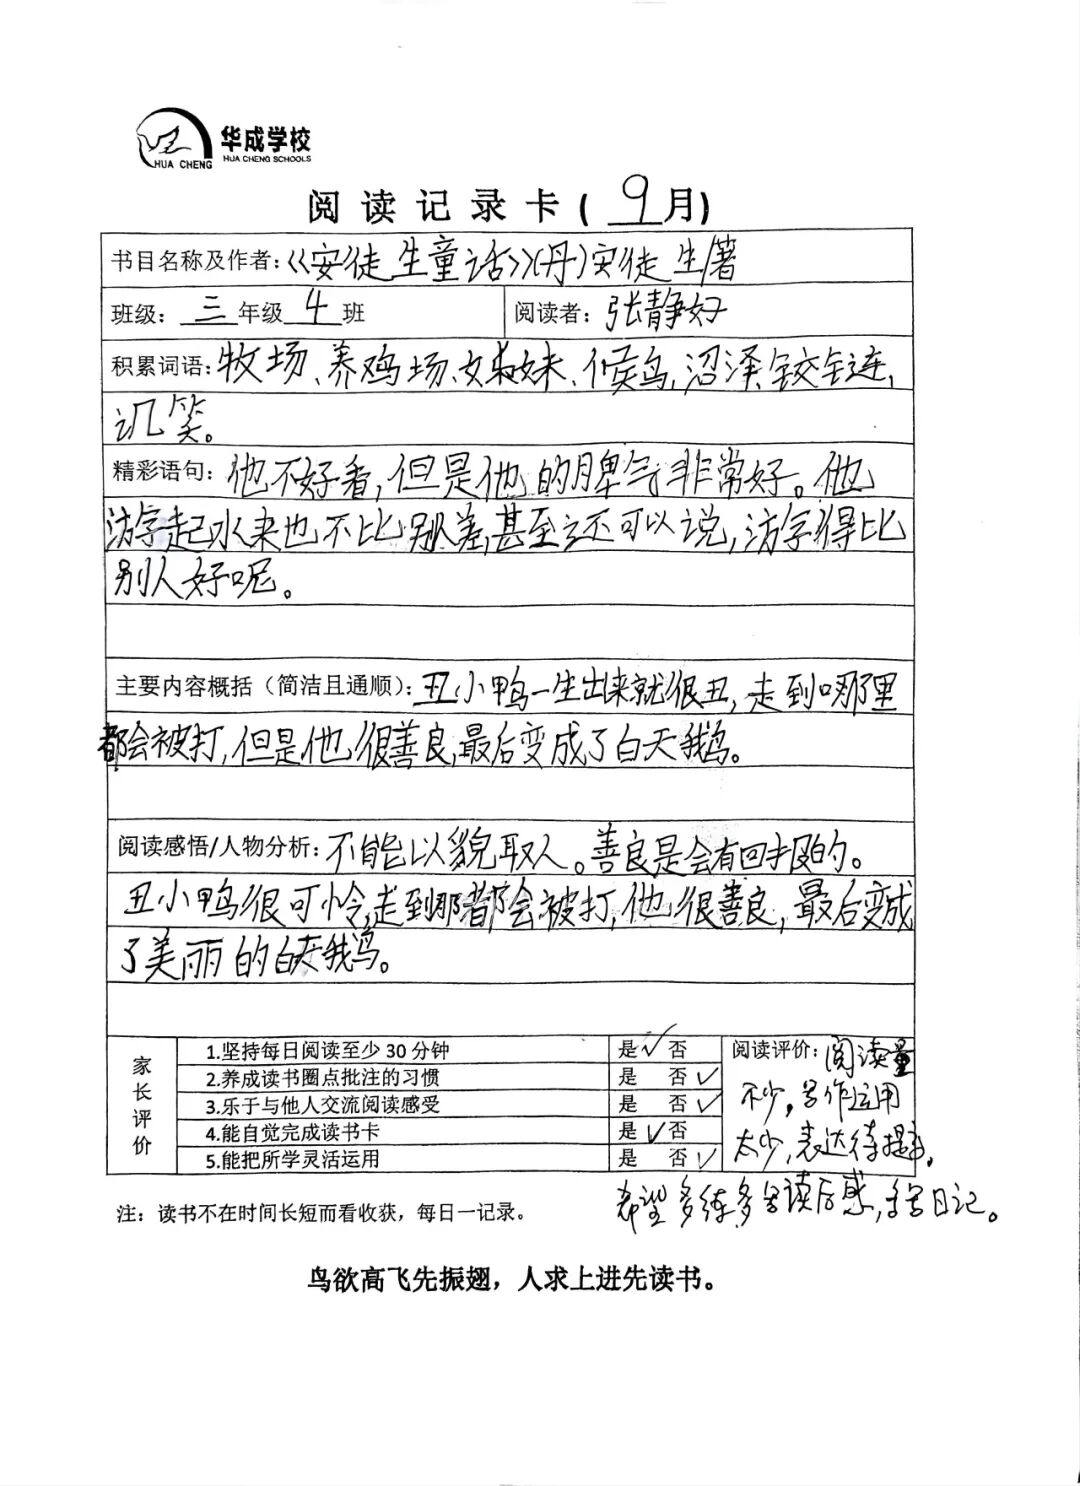 华成学校
HUA CHENG
HUA CHENG SCHOOLS
阅读记录卡(9月)
书目名称及作者:《安徒生童话》(丹)安徒生/著
班级:三年级4班 阅读者:张静好
积累词语:牧场、养鸡场、妹、候鸟,沼泽,铰链,
讥笑。
精彩语句:他不好看,但是他的脾气非常好。他
游起水来也不比别人差,甚至还可以说,游得比
别人好呢。
主要内容概括(简洁且通顺):丑小鸭一生出来就很丑,走到哪里
都会被打,但是他很善良,最后变成了白天鹅。
阅读感悟/人物分析:不能以貌取人。善良是会有回报的。
丑小鸭很可怜,走到那都会被打,他很善良,最后变成
了美丽的白天鹅。
家长评价
1.坚持每日阅读至少30分钟 是√ 否
2.养成读书圈点批注的习惯 是 否√
3.乐于与他人交流阅读感受 是 否√
4.能自觉完成读书卡 是√否
5.能把所学灵活运用 是 否√
阅读评价:阅读量
不少,写作运用
太少,表达待提高。
希望多练多写读后感,多写日记。
注:读书不在时间长短而看收获,每日一记录。
鸟欲高飞先振翅,人求上进先读书。